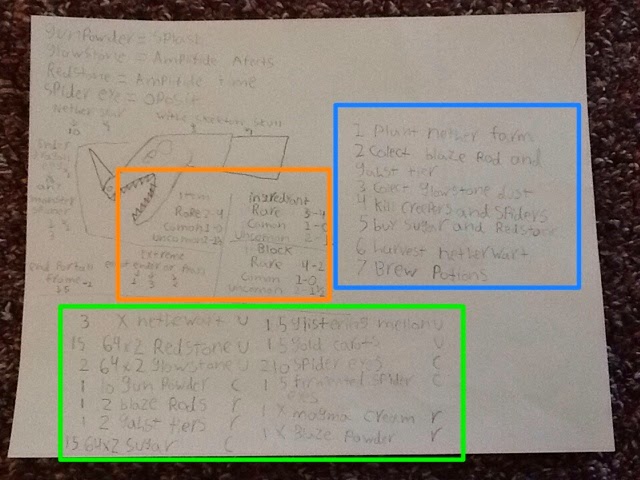 gunPowder = SPlash
glowstone = AmPlifide Afects
Redstone = AmPlifide time
SPider eye = oPosit
Nether star
10
withe skeleton skull
Item
Rare 2-4
Coman 1-0
uncoman
ingrediant
Rare 3-4
Coman
uncoman
Block
Rare 4-2
Coman 1-0
uncoman
Extreme
end Portall
frame
1 Plant nether farm
2 Colect blaze Rod and
gahst tier
3 Colect glowstone dust
4 kill CreePers and SPiders
5 buy sugar and Redstone
6 harvest netherwart
7 Brew Potions
3 X nethewart U
15 64x2 Redstone U
2 64x2 glowstone U
1 10 gun Powder C
1 2 blaze Rods r
1 2 gahst tiers r
15 64x2 sugar C
1 5 glistering mellon U
1 5 gold carots U
2 10 SPider eyes C
1 5 firmented SPider C
eyes
1 X magma Cream r
1 X Blaze Powder r